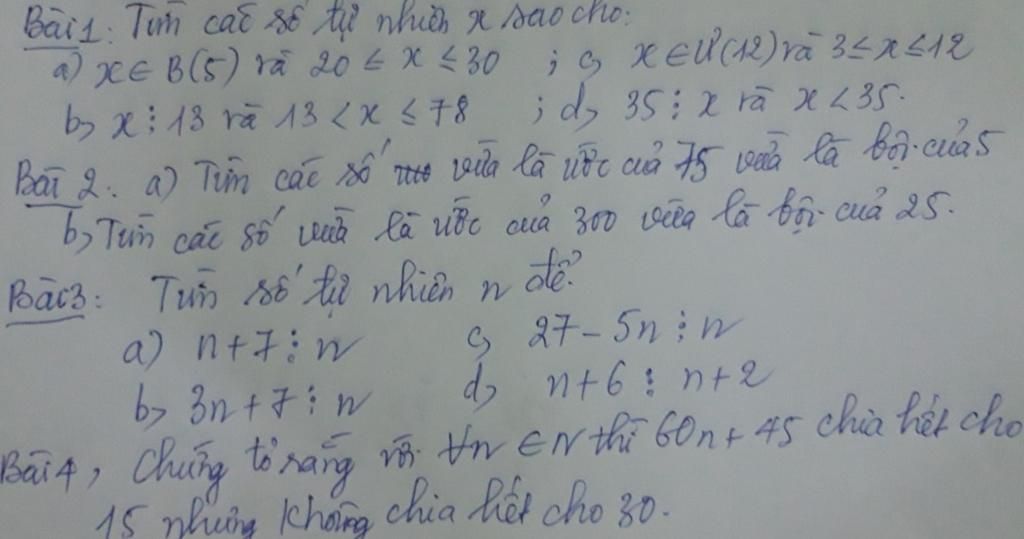 Bài 1: Tìm các số tự nhiên x sao cho:
a) x ∈ B(5) và 20 ≤ x ≤ 30 ; c, x ∈ Ư(12) và 3 ≤ x ≤ 12
b, x ⋮ 13 và 13 < x ≤ 78 ; d, 35 ⋮ x và x < 35.
Bài 2: a) Tìm các số vừa là ước của 75 vừa là bội của 5
b, Tìm các số vừa là ước của 300 vừa là bội của 25.
Bài 3: Tìm số tự nhiên n để:
a) n + 7 ⋮ n c, 27 - 5n ⋮ n
b, 3n + 7 ⋮ n d, n + 6 ⋮ n + 2
Bài 4, Chứng tỏ rằng với ∀n ∈ N thì 60n + 45 chia hết cho
15 nhưng không chia hết cho 30.